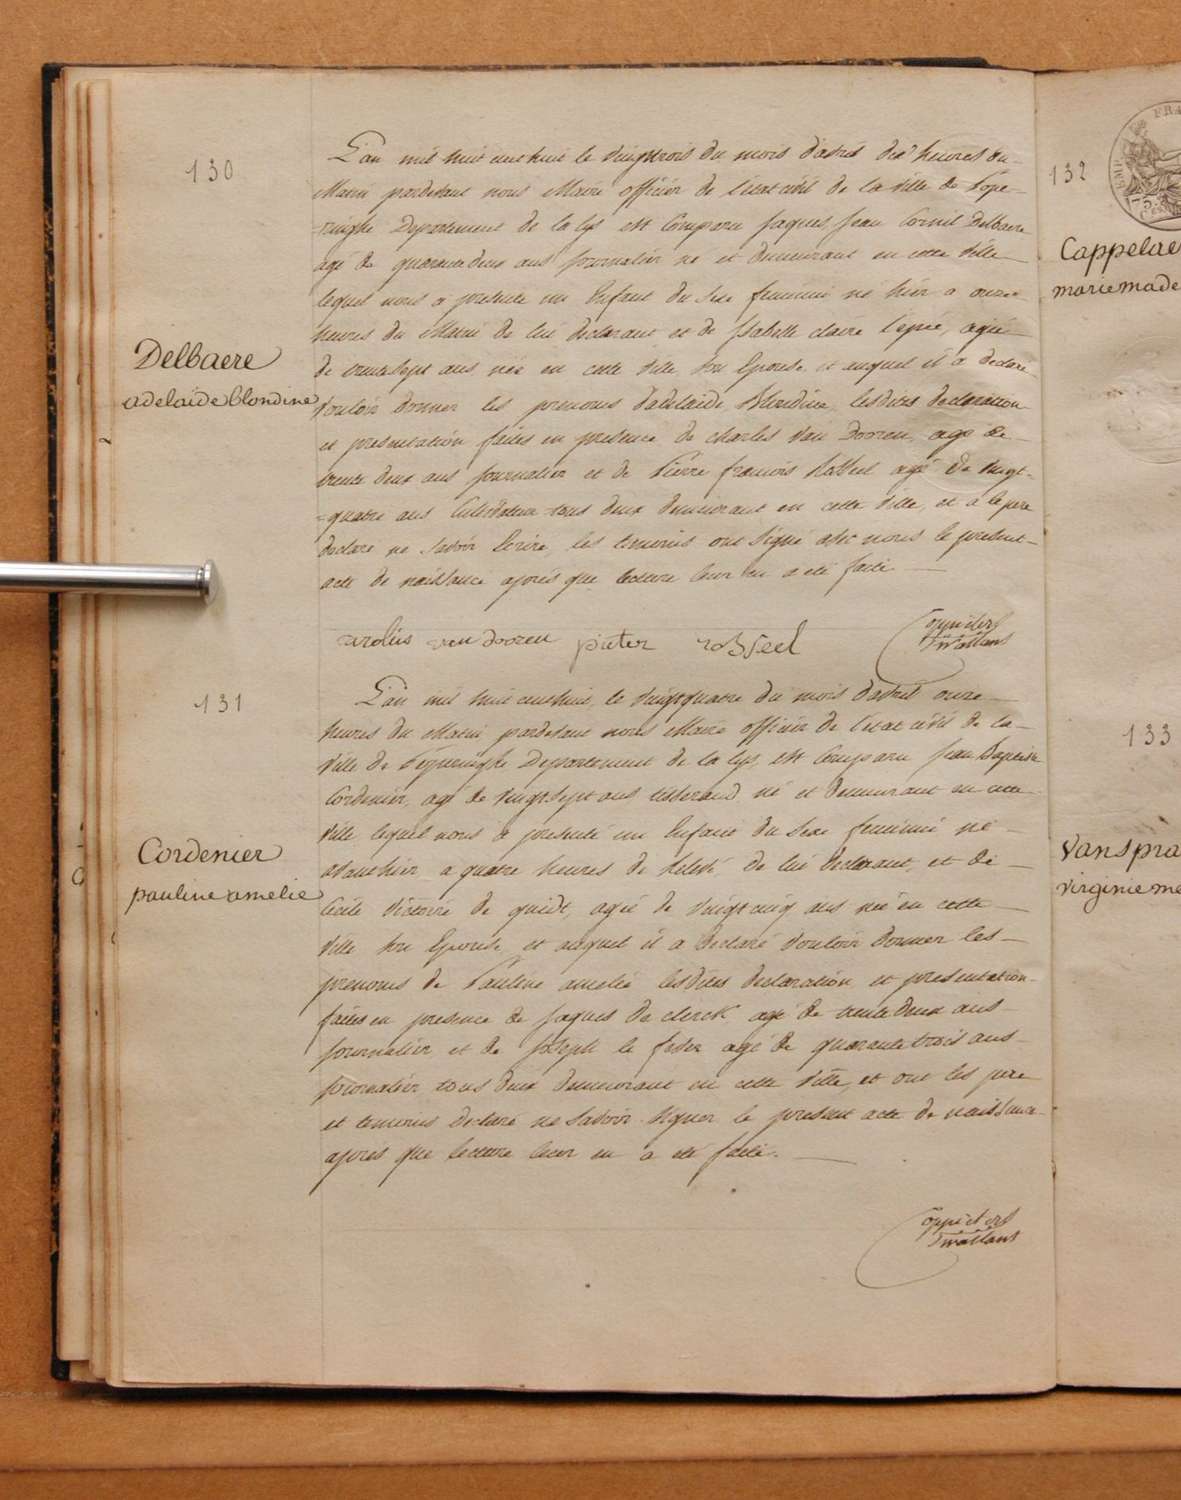 130
Delbaere
adelaïde blondine
L'an mil huit cent huit le vingttrois du mois d'avril dix heures du
Matin pardevant nous Maire officier de l'état civil de la ville de Pope-
-ringhe Departement de la lys est Comparu Jaques Jean Cornil Delbaere
agé de quarantedeux ans Journalier né et demeurant en cette ville
lequel nous a presenté un Enfant du Sexe feminin né hier a onze
heures du Matin de lui declarant et de Isabelle claire l'epée, agée
de trentesept ans née en cette ville son Epouse et auquel il a declaré
vouloir donner les prenoms d'adelaide Blondine, lesdites declaration
et presentation faites en presence de charles van Dooren, agé de
trente deux ans Journalier et de Pierre francois Rosseel agé de vingt-
=quatre ans Cultivateur tous deux demeurant en cette ville, et a le pere
declaré ne savoir Ecrire, les temoins ont signé avec nous le present
acte de naissance aprés que lecture leur en a eté faite
carolus van dooren pieter rosseel
131
Cordenier
pauline amelie
L'an mil huit cent huit, le vingtquatre du mois d'avril onze
heures du Matin pardevant nous Maire officier de l'état civil de la
ville de Poperinghe Departement de la lys, est Comparu Jean Baptiste
Cordenier, agé de vingtsept ans tisserand né et demeurant en cette
ville lequel nous a presenté un Enfant du Sexe feminin né
avanthier a quatre heures de relevé, de lui declarant, et de
Cecile victoire de quidt, agée de vingtcinq ans née en cette
ville son Epouse, et auquel il a declaré vouloir donner les
prenoms de Pauline amelie lesdites declaration et presentation
faites en presence de Jaques de clerck agé de trentedeux ans
Journalier et de Joseph le fever agé de quarantetrois ans
Journalier tous deux demeurant en cette ville, et ont les pere
et temoins declaré ne savoir signer le present acte de naissance
aprés que lecture leur en a eté faite.
132
Cappelae
marie made
133
Vanspra
virginie me